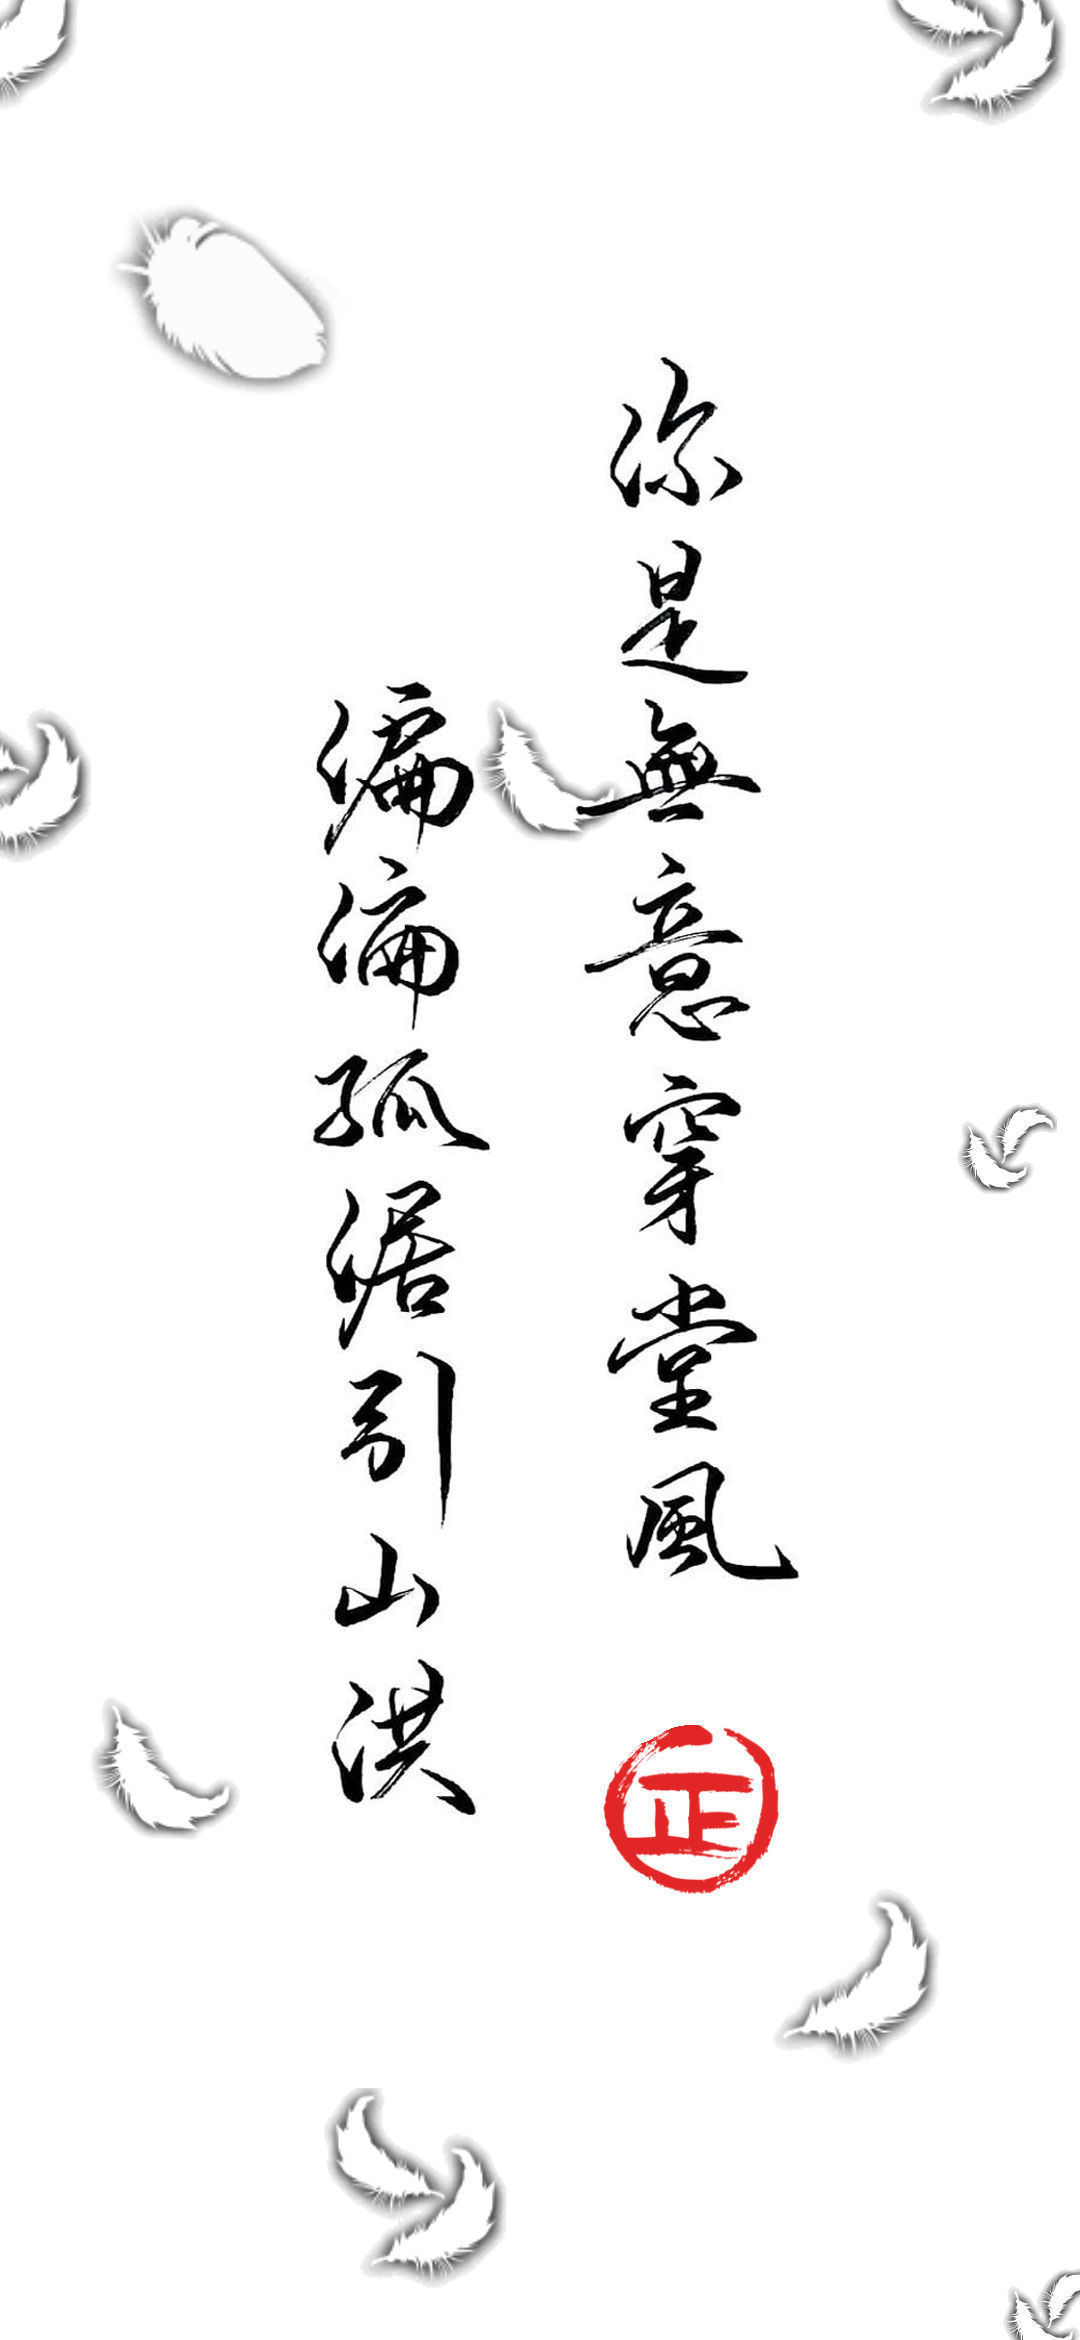 你是無意穿堂風
正
偏偏孤倨引山洪